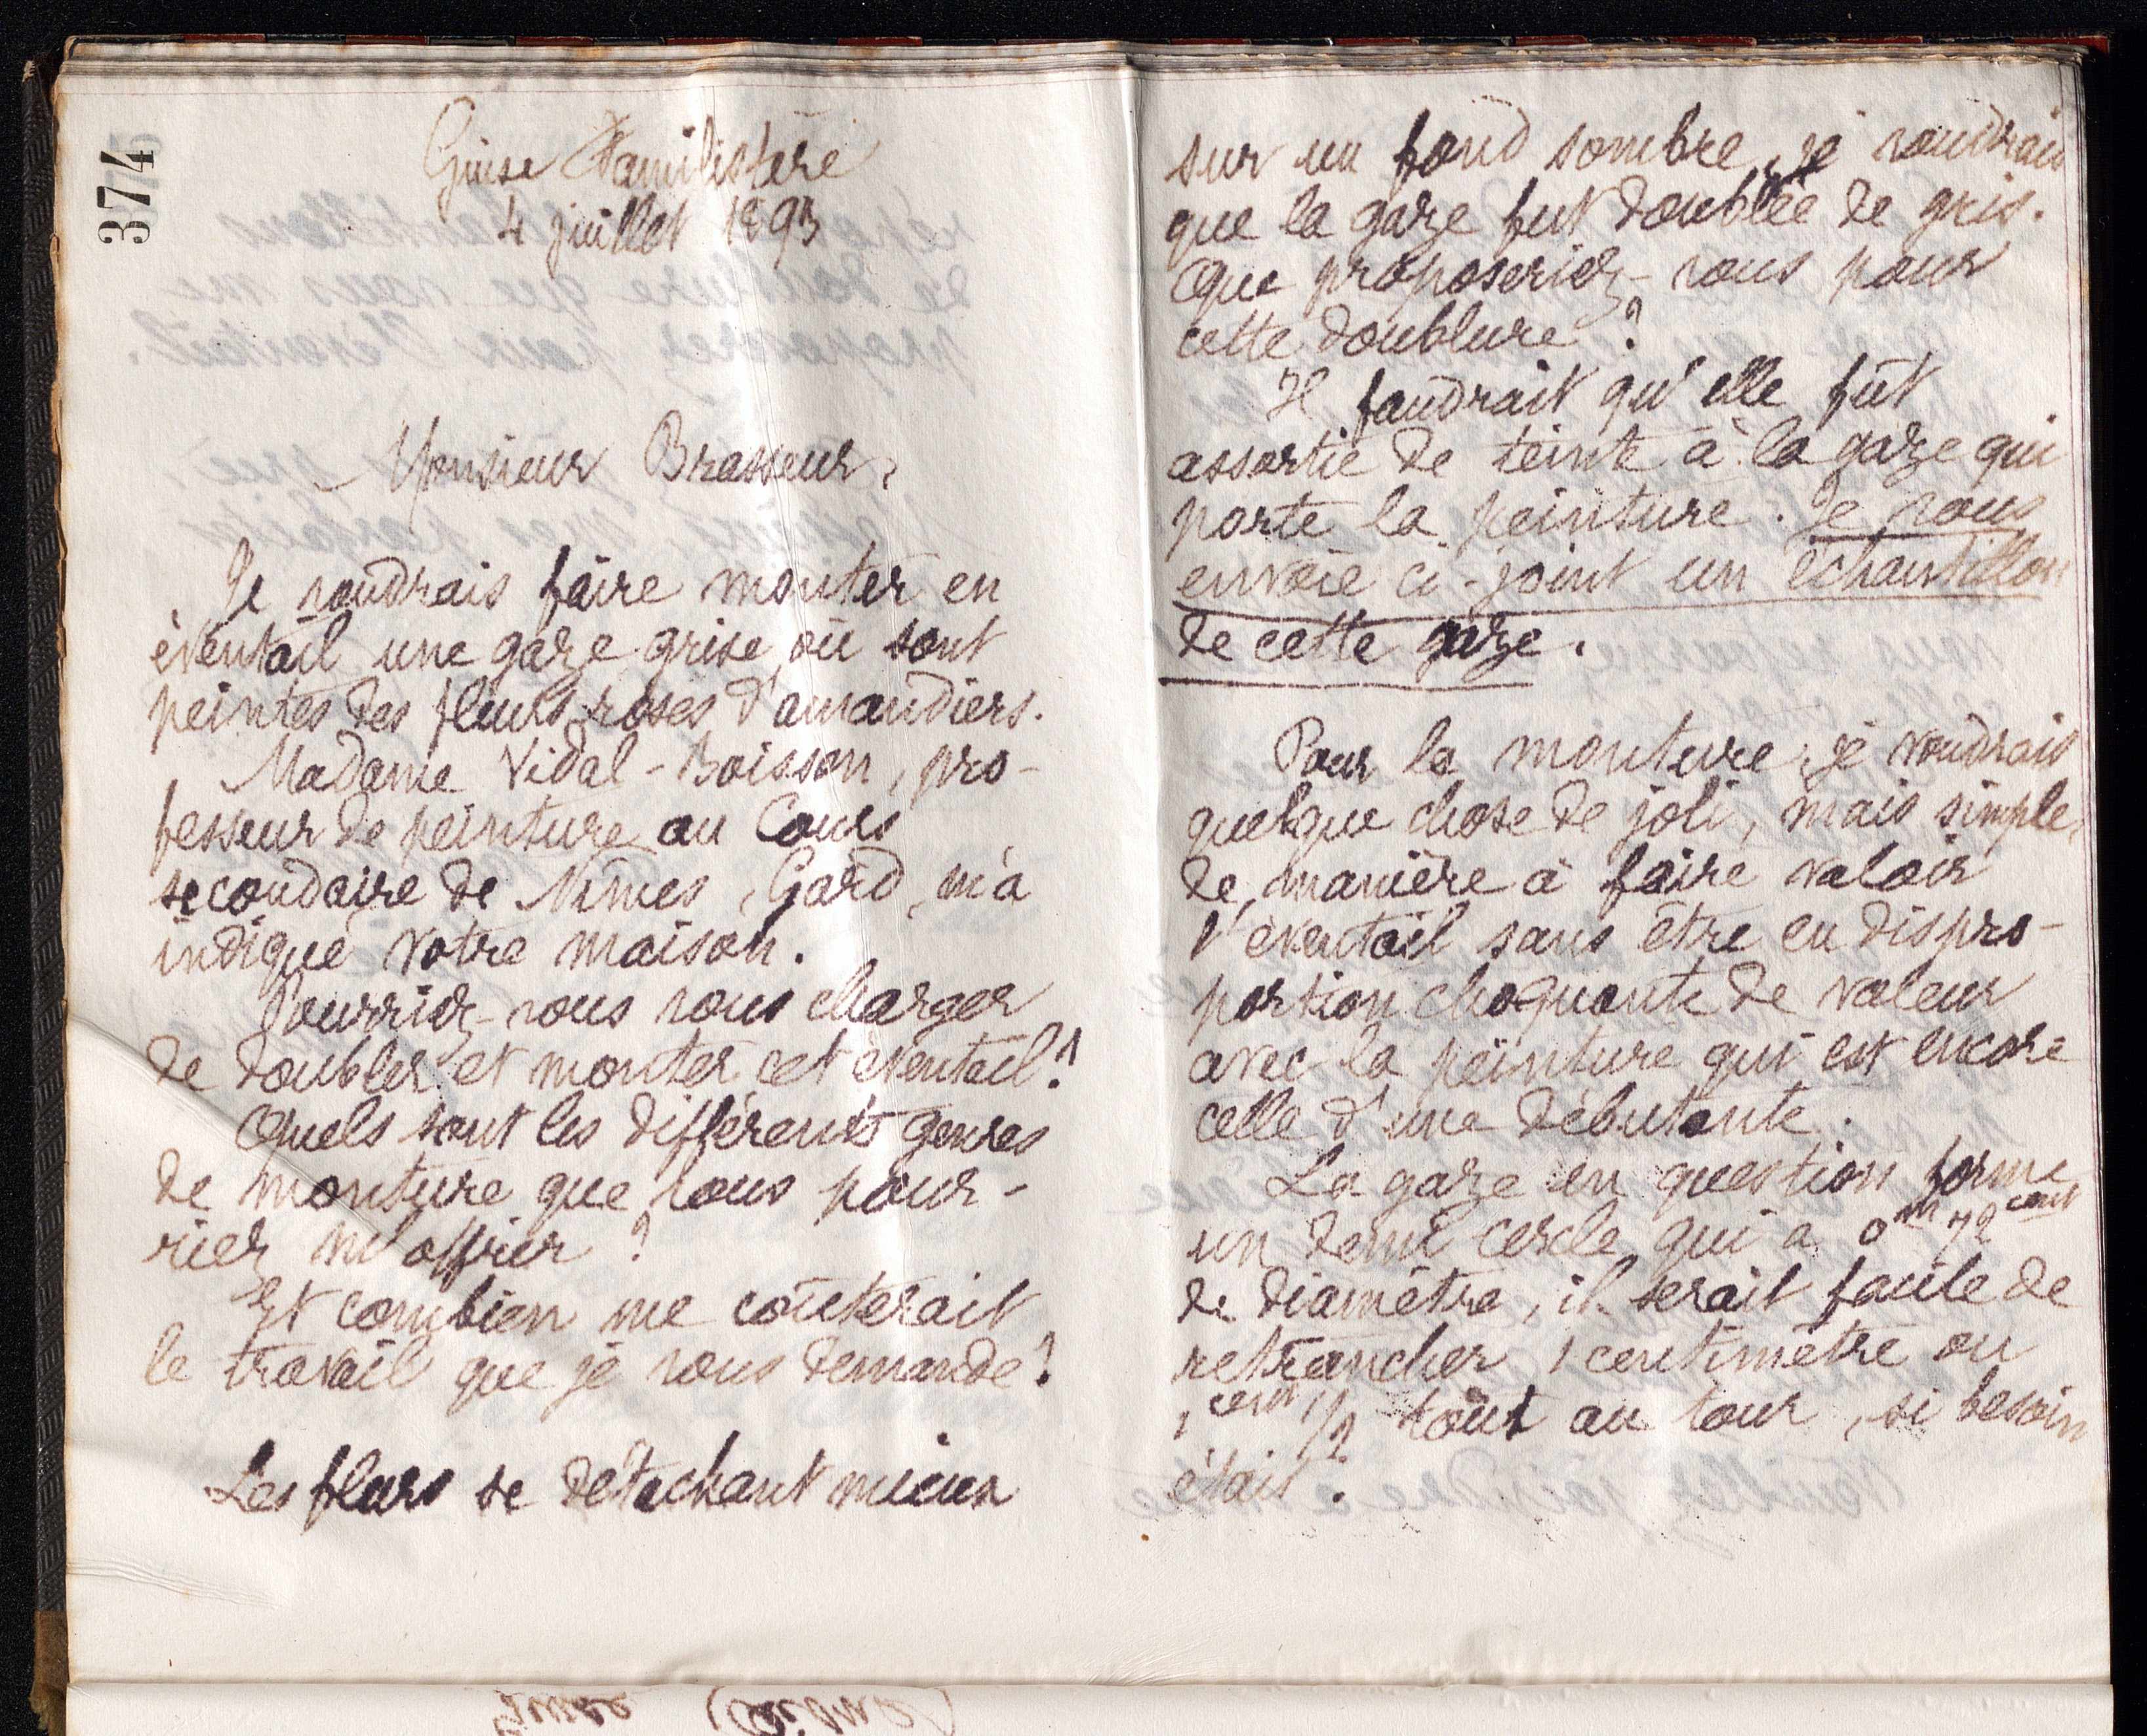 374
Guise Familistère
4 juillet 1893
Monsieur Brasseur,
Je voudrais faire monter en
éventail une gaze grise où sont
peintes des fleurs roses d'amandiers.
Madame Vidal-Boisson, pro-
fesseur de peinture au Cours
secondaire de Nîmes, Gard, m'a
indiqué votre maison.
Pourriez-vous vous charger
de doubler et monter cet éventail?
Quels sont les différents genres
de monture que vous pour-
riez m'offrir ?
Et combien me coûterait
le travail que je vous demande?
Les fleurs se détachant mieux
sur un fond sombre, je voudrais
que la gaze fut doublée de gris.
Que proposeriez-vous pour
cette doublure ?
Il faudrait qu'elle fût
assortie de teinte à la gaze qui
porte la peinture. Je vous
envoie ci-joint un échantillon
de cette gaze.
Pour la monture, je voudrais
quelque chose de joli, mais simple,
de manière à faire valoir
l'éventail sans être en dispro-
portion choquante de valeur
avec la peinture qui est encore
celle d'une débutante.
La gaze en question forme
un demi cercle qui a 0m 72 cent
de diamètre, il serait facile de
retrancher 1 centimètre ou
1 cent 1/2 tout au tour, si besoin
était.
Guise (Aisne)